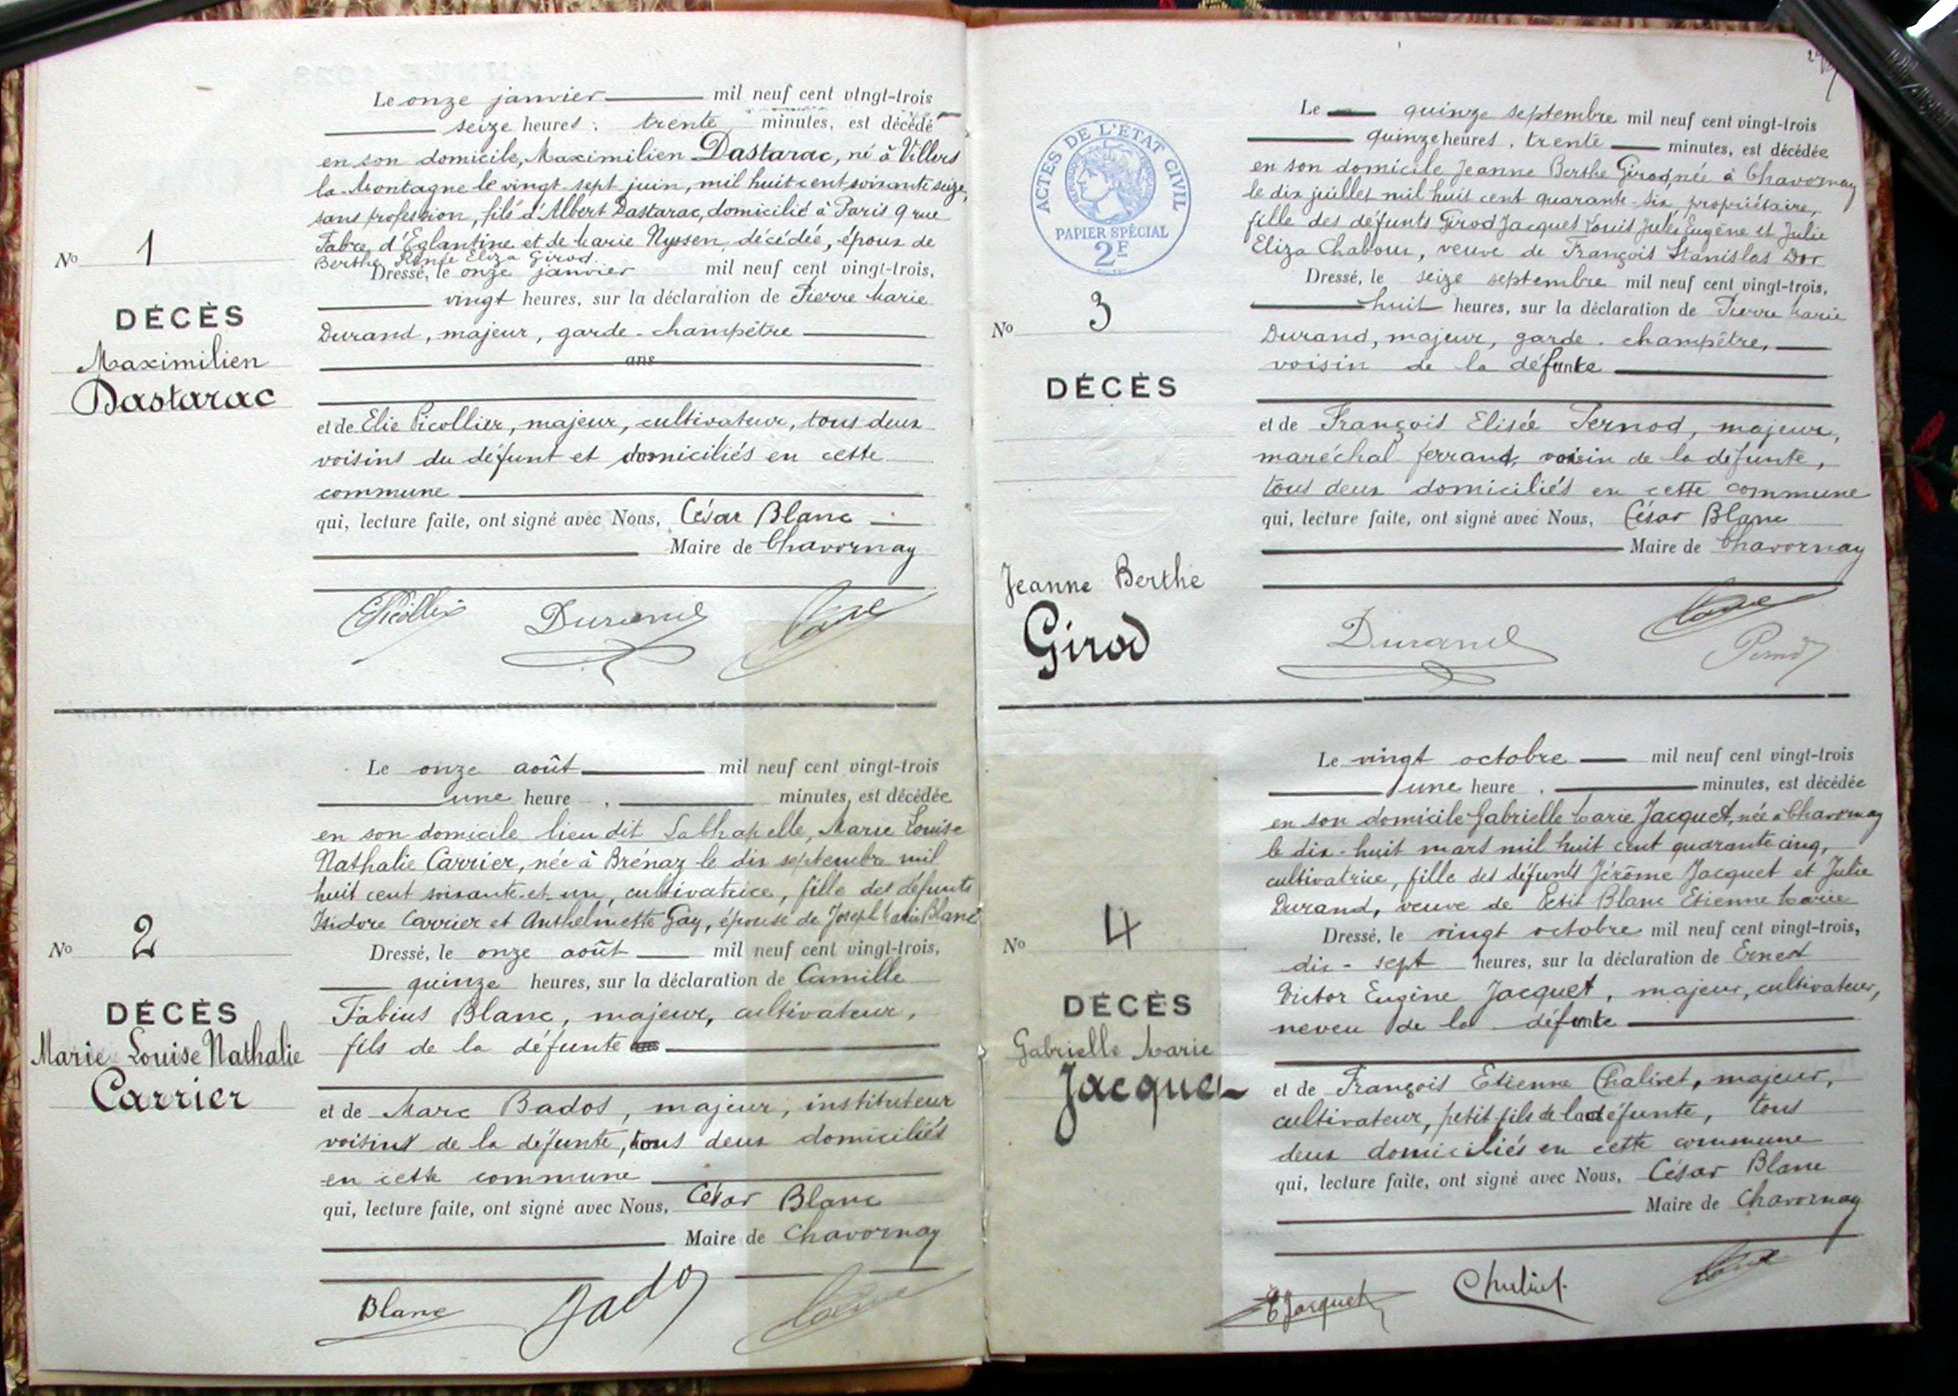 Le onze janvier mil neuf cent vingt-trois
seize heures, trente minutes, est décédé
en son domicile, Maximilien Dastarac, né à Villers
la Montagne le vingt sept juin, mil huit cent soixante seize,
sans profession, fils d'Albert Dastarac, domicilié à Paris 9 rue
Fabre d'Eglantine et de Marie Nyssen, décédée, époux de
Berthe Renée Eliza Girod.
Dressé, le onze janvier mil neuf cent vingt-trois,
vingt heures, sur la déclaration de Pierre Marie
Durand, majeur, garde-champêtre
ans
et de Elie Picollier, majeur, cultivateur, tous deux
voisins du défunt et domiciliés en cette
commune
qui, lecture faite, ont signé avec Nous, César Blanc
Maire de Chavornay
No 1
DÉCÈS
Maximilien
Dastarac
EPicollier Durand
Le onze août mil neuf cent vingt-trois
une heure, minutes, est décédée
en son domicile lieu dit La Chapelle, Marie Louise
Nathalie Carrier, née à Brénaz le dix septembre mil
huit cent soixante-et-un, cultivatrice, fille des défunts
Isidore Carrier et Anthelmette Gay, épouse de Joseph Marie Blanc
Dressé, le onze août mil neuf cent vingt-trois,
quinze heures, sur la déclaration de Camille
Fabius Blanc, majeur, cultivateur,
fils de la défunte ans
et de Marc Bados, majeur, instituteur
voisins de la défunte, tous deux domiciliés
en cette commune
qui, lecture faite, ont signé avec Nous, César Blanc
Maire de Chavornay
No 2
DÉCÈS
Marie Louise Nathalie
Carrier
Blanc Bados
ACTES DE L'ETAT CIVIL
PAPIER SPÉCIAL
2F
Le quinze septembre mil neuf cent vingt-trois
quinze heures, trente minutes, est décédée
en son domicile Jeanne Berthe Girod, née à Chavornay
le dix juillet mil huit cent quarante-six, propriétaire,
fille des défunts Girod Jacquet Louis Jules Eugène et Julie
Eliza Chabour, veuve de François Stanislas Dor
Dressé, le seize septembre mil neuf cent vingt-trois,
huit heures, sur la déclaration de Pierre Marie
Durand, majeur, garde-champêtre,
voisin de la défunte
et de François Elisée Pernod, majeur,
maréchal ferrand, voisin de la défunte,
tous deux domiciliés en cette commune
qui, lecture faite, ont signé avec Nous, César Blanc
Maire de Chavornay
No 3
DÉCÈS
Jeanne Berthe
Girod
Durand Pernod
Le vingt octobre mil neuf cent vingt-trois
une heure, minutes, est décédée
en son domicile Gabrielle Marie Jacquet, née à Chavornay
le dix-huit mars mil huit cent quarante cinq,
cultivatrice, fille des défunts Jérôme Jacquet et Julie
Durand, veuve de Petit Blanc Etienne Marie
Dressé, le vingt octobre mil neuf cent vingt-trois,
dix-sept heures, sur la déclaration de Ernest
Victor Eugène Jacquet, majeur, cultivateur,
neveu de la défunte
et de François Etienne Chaliret, majeur,
cultivateur, petit fils de la défunte, tous
deux domiciliés en cette commune
qui, lecture faite, ont signé avec Nous, César Blanc
Maire de Chavornay
No 4
DÉCÈS
Gabrielle Marie
Jacquet
EJacquet